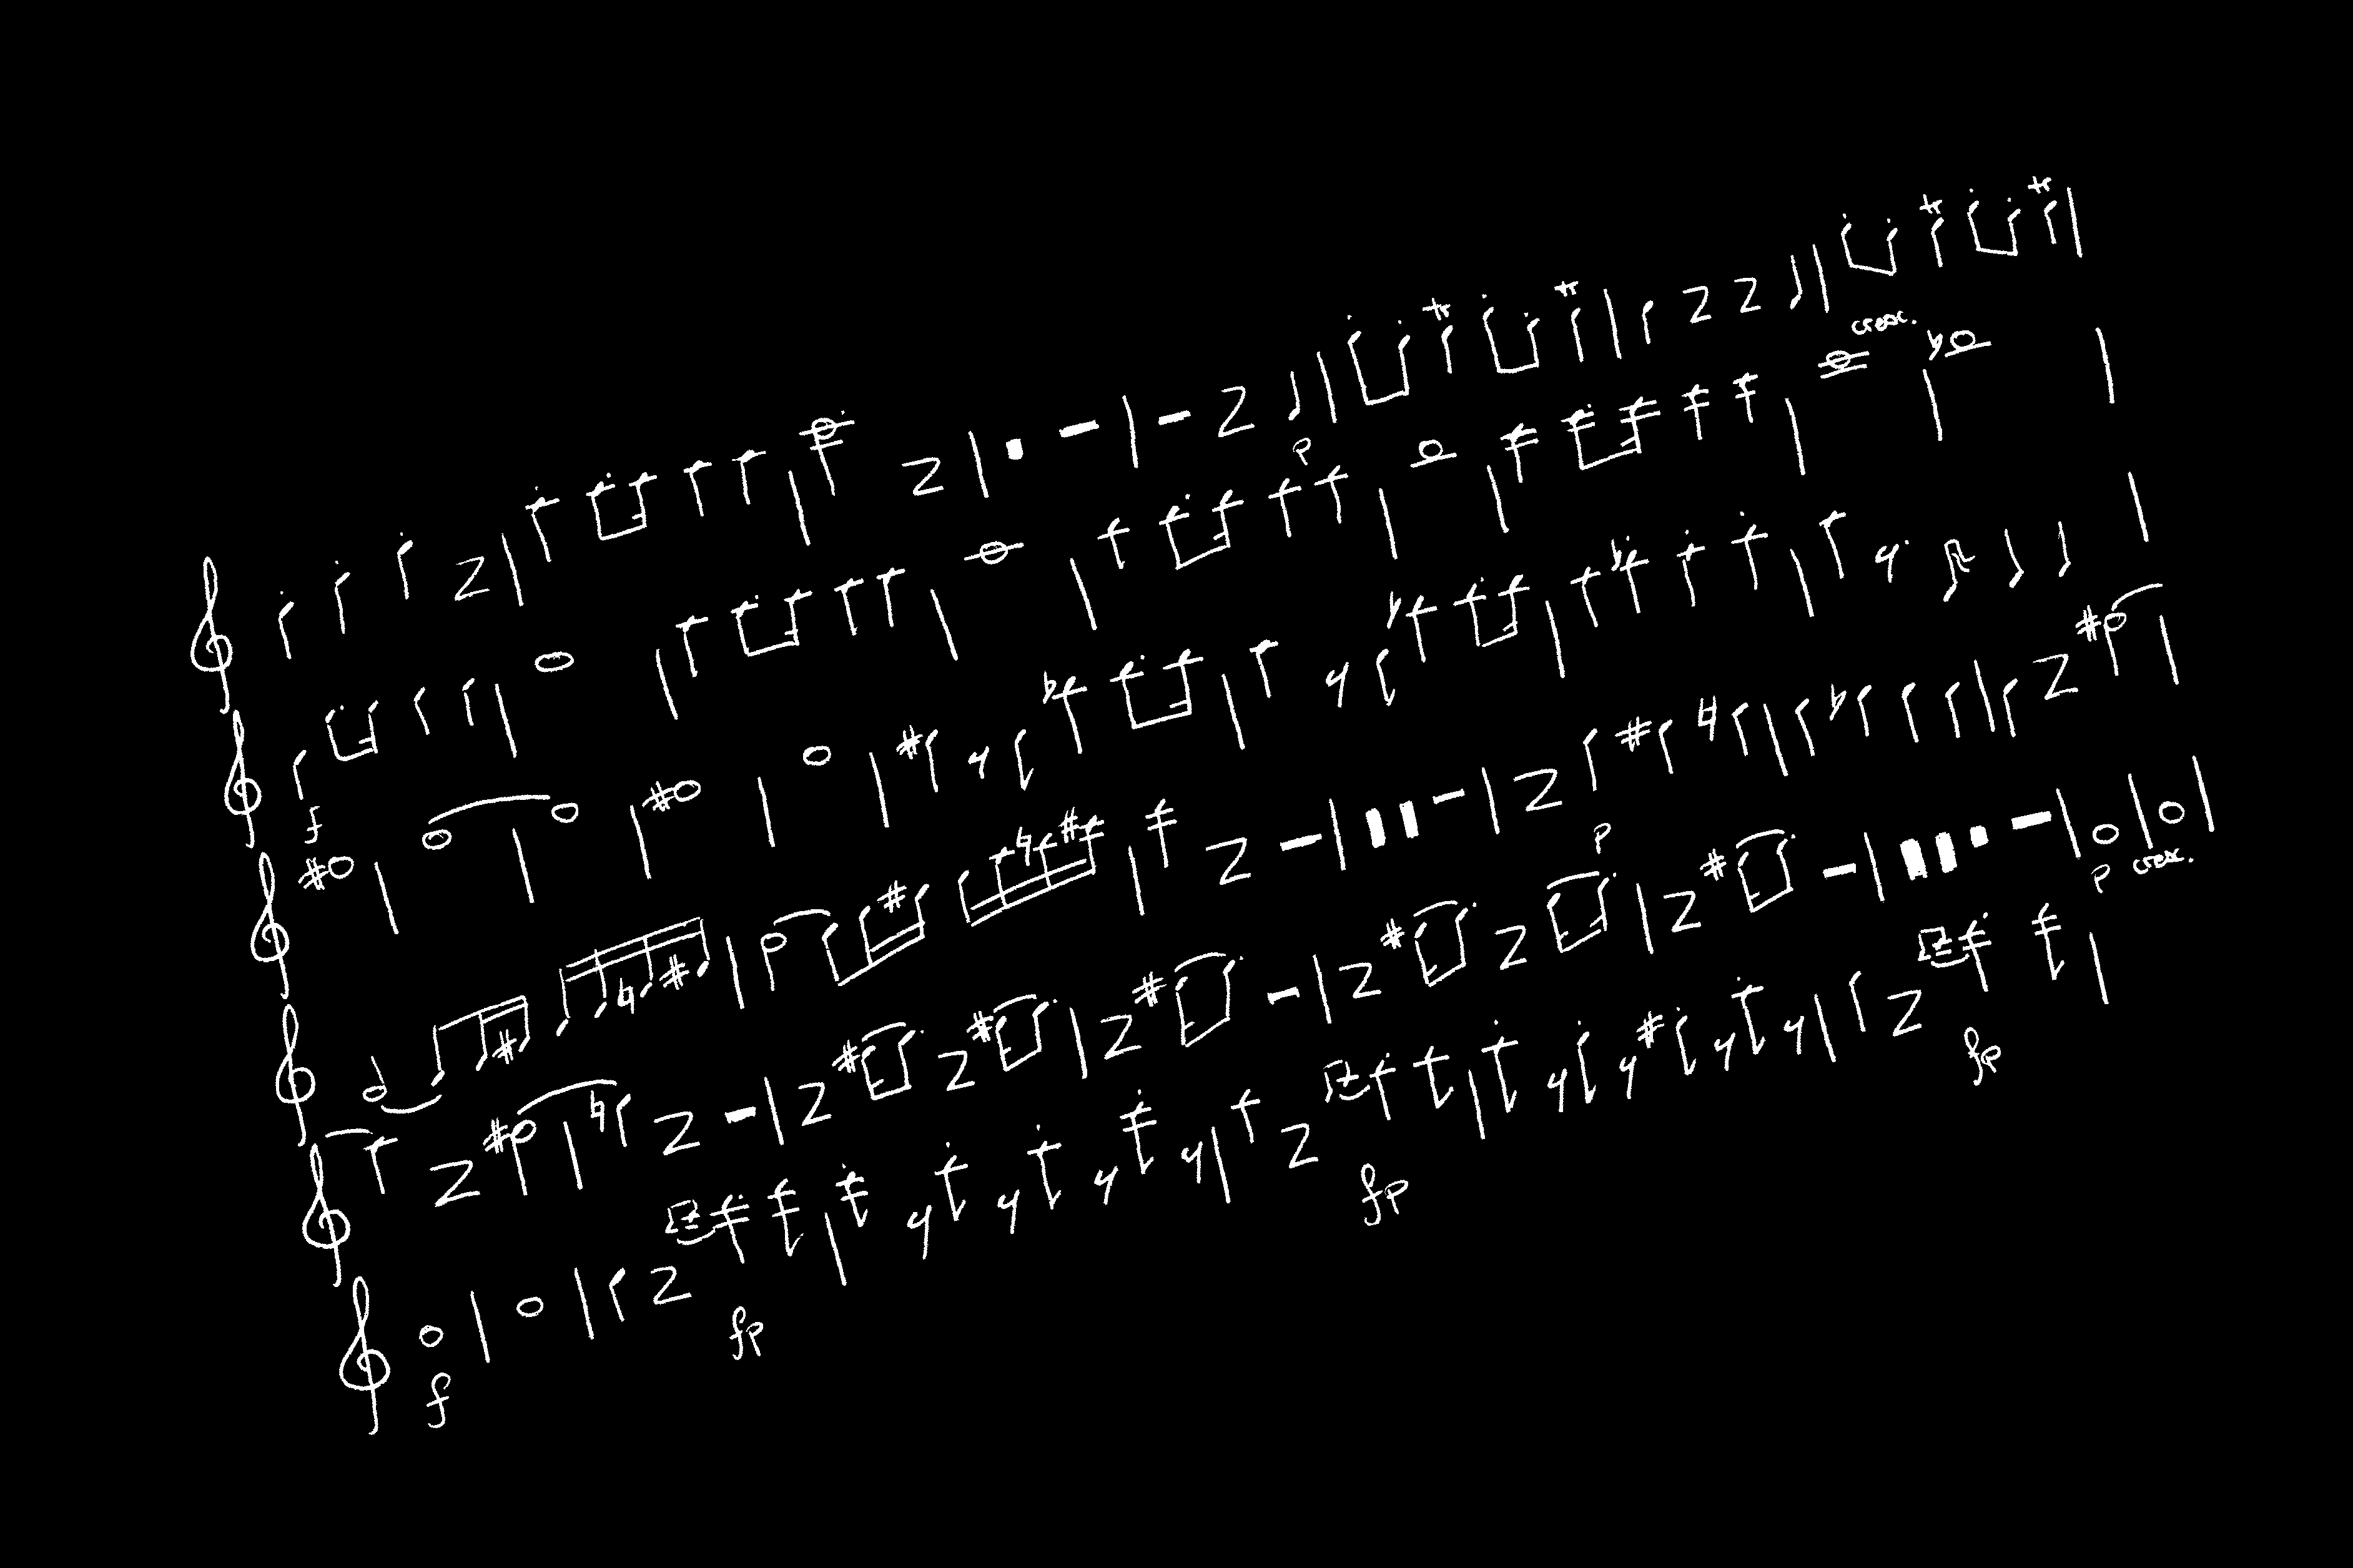 tr tr tr tr
p cresc.
f
p
p cresc.
fp fp
f fp